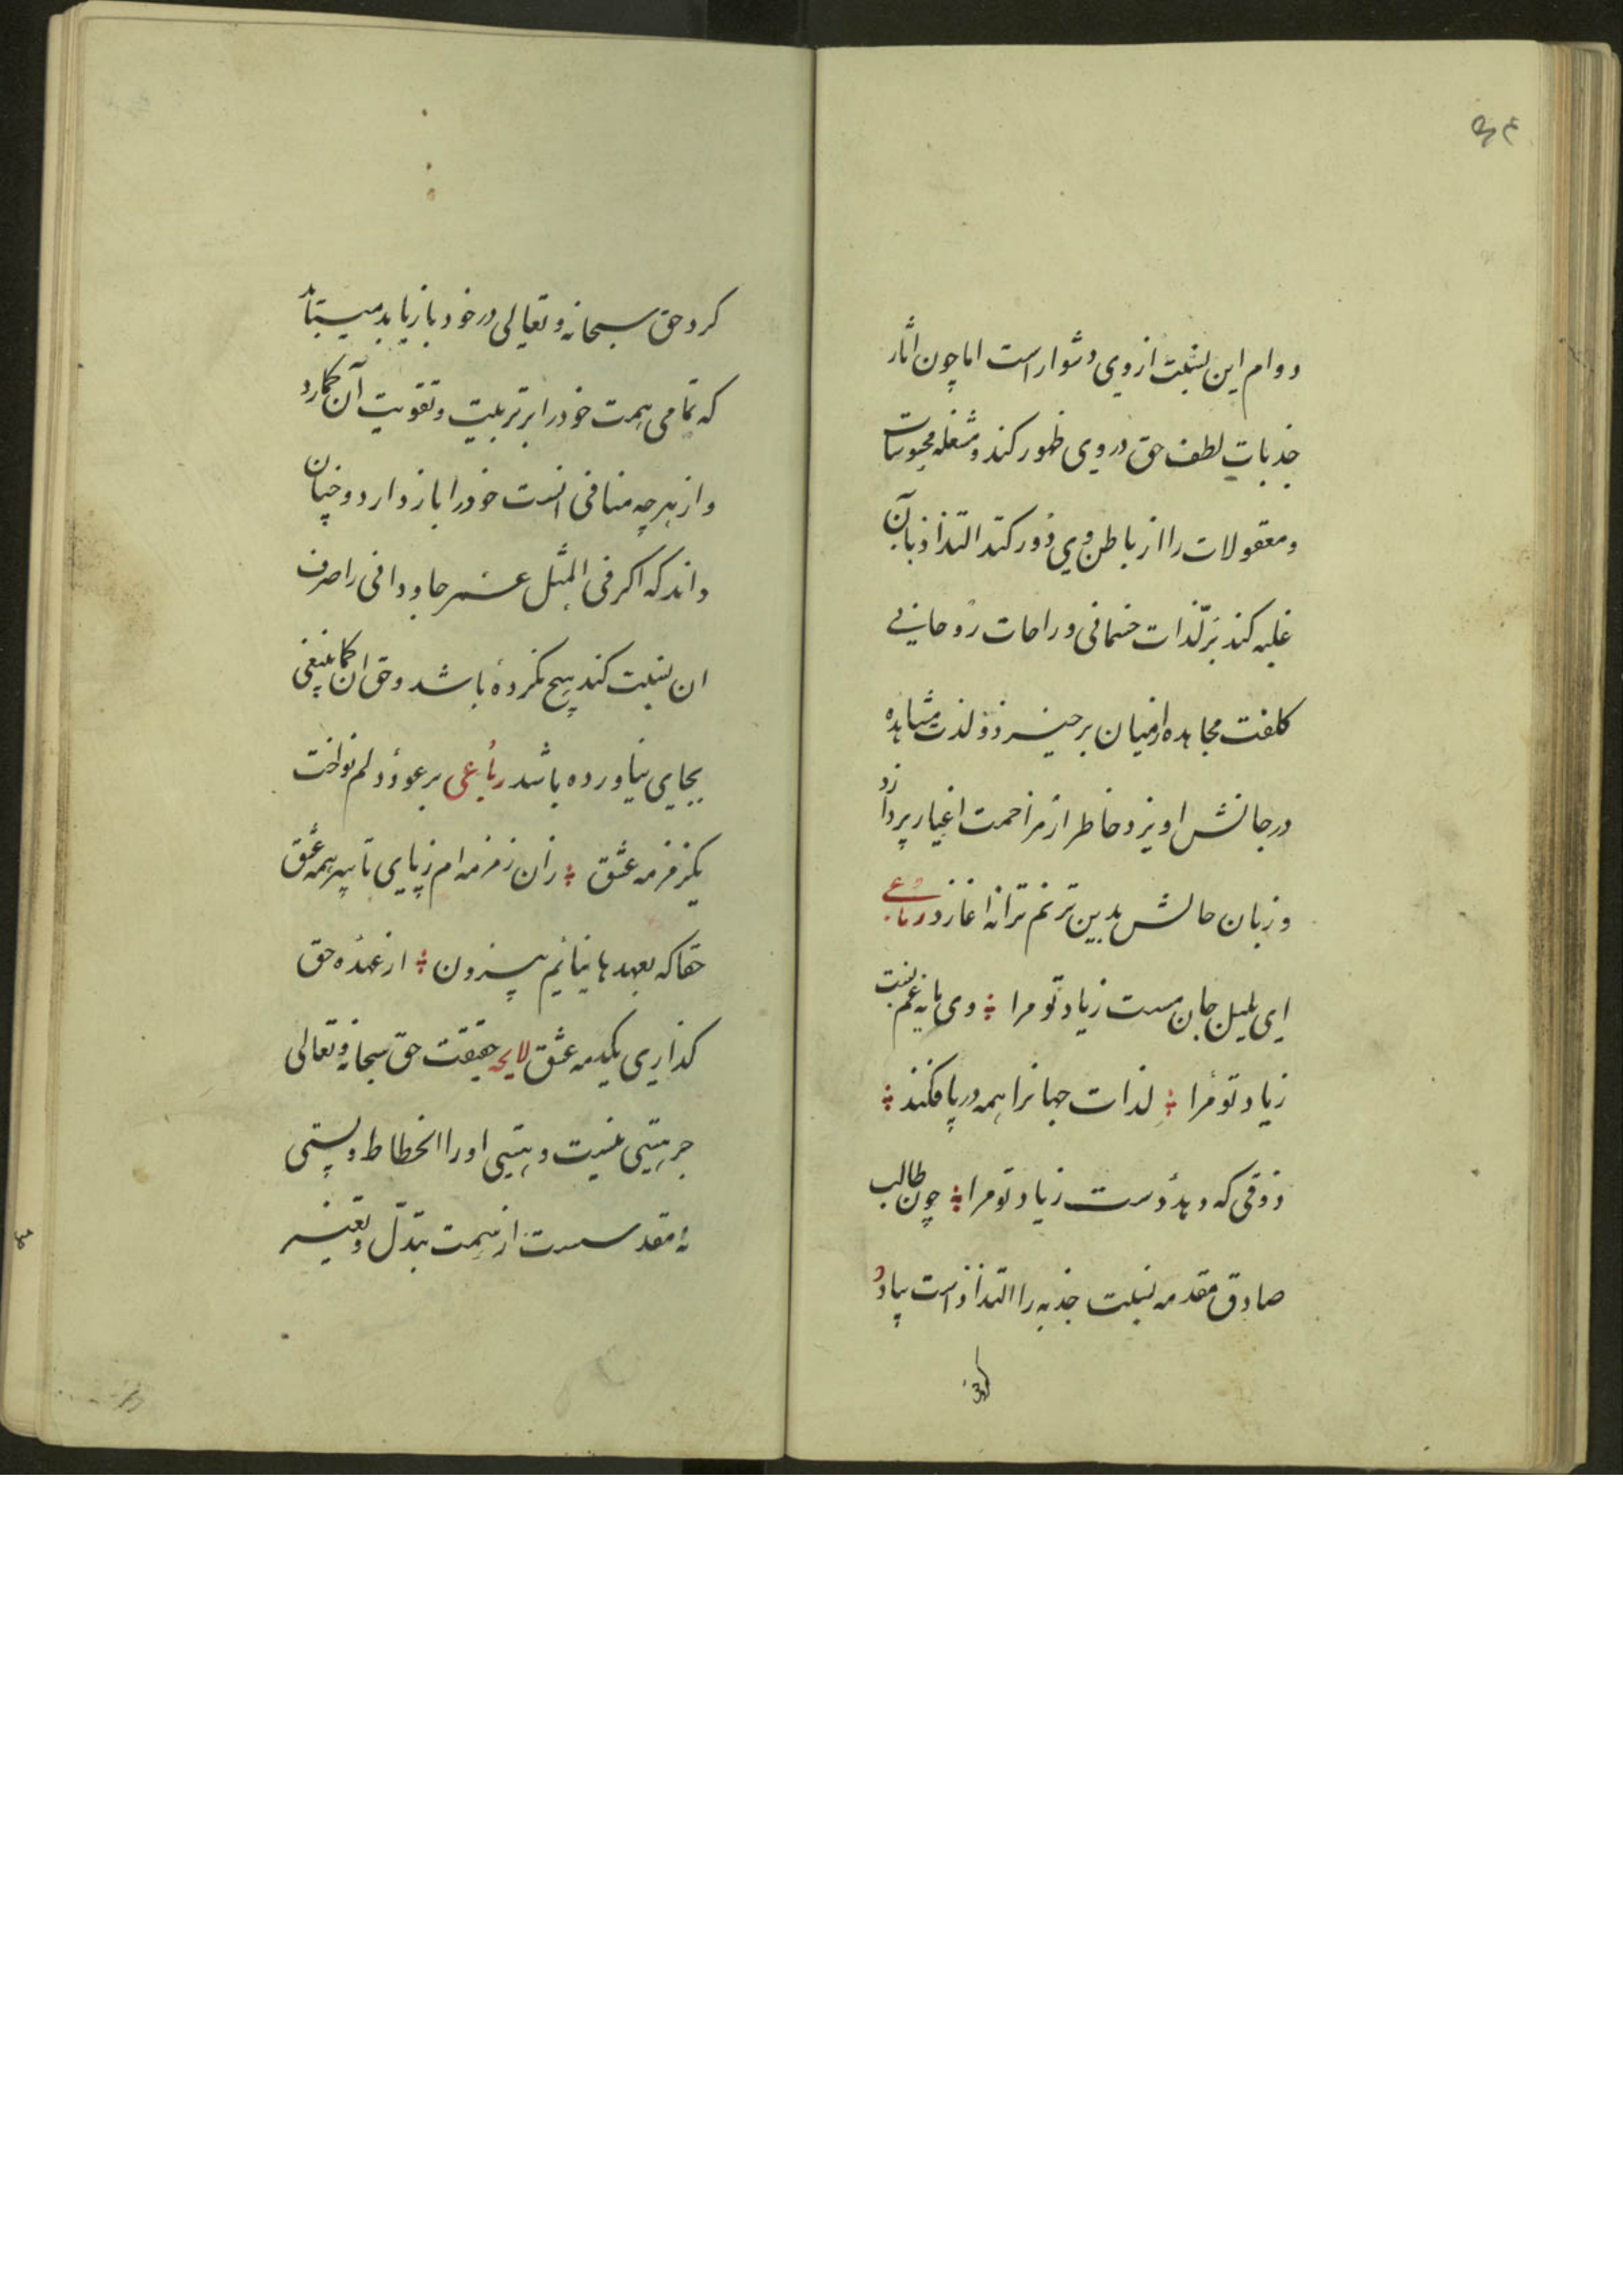 دوام این نسبت از وی دشوار است اما چون آثار
جذبات لطف حق در وی ظهور کند و مشغله محسوسات
و معقولات را از باطن وی دور کند التذاذ بآن
غلبه کند بر لذات جسمانی و راحات روحانی
کلفت مجاهده از میان برخیزد و لذت مشاهده
در جانش اویزد خاطر از مزاحمت اغیار پردازد
و زبان حالش بدین ترنم ترانه اغازد رباعی
ای بلبل جان مست زیاد تو مرا وی پایه غم پست
زیاد تو مرا لذات جهانرا همه در پا فکند
ذوقی که دهد دست زیاد تو مرا چون طالب
صادق مقدمه نسبت جذبه را التذاذ است بیاد
کرد حق سبحانه و تعالی در خود باز یابد میباید
که تمامی همت خود را بر تربیت و تقویت آن کمارد
و از هر چه منافی انست خود را باز دارد و چنان
داند که اکر فی المثل عمر جاودانی را صرف
ان نسبت کند هیچ نکرده باشد و حق ان کما ینبغی
بجای نیاورده باشد رباعی بر عود دلم نواخت
یک زمزمه عشق زان زمزمه ام ز پای تا سر همه عشق
حقا که بعهدها نیایم بیرون از عهده حق
کذاری یکدمه عشق لایحه حقیقت حق سبحانه و تعالی
جز هستی نیست و هستی او را انحطاط و پستی
نه مقدسست از سمت تبدل و تغیر